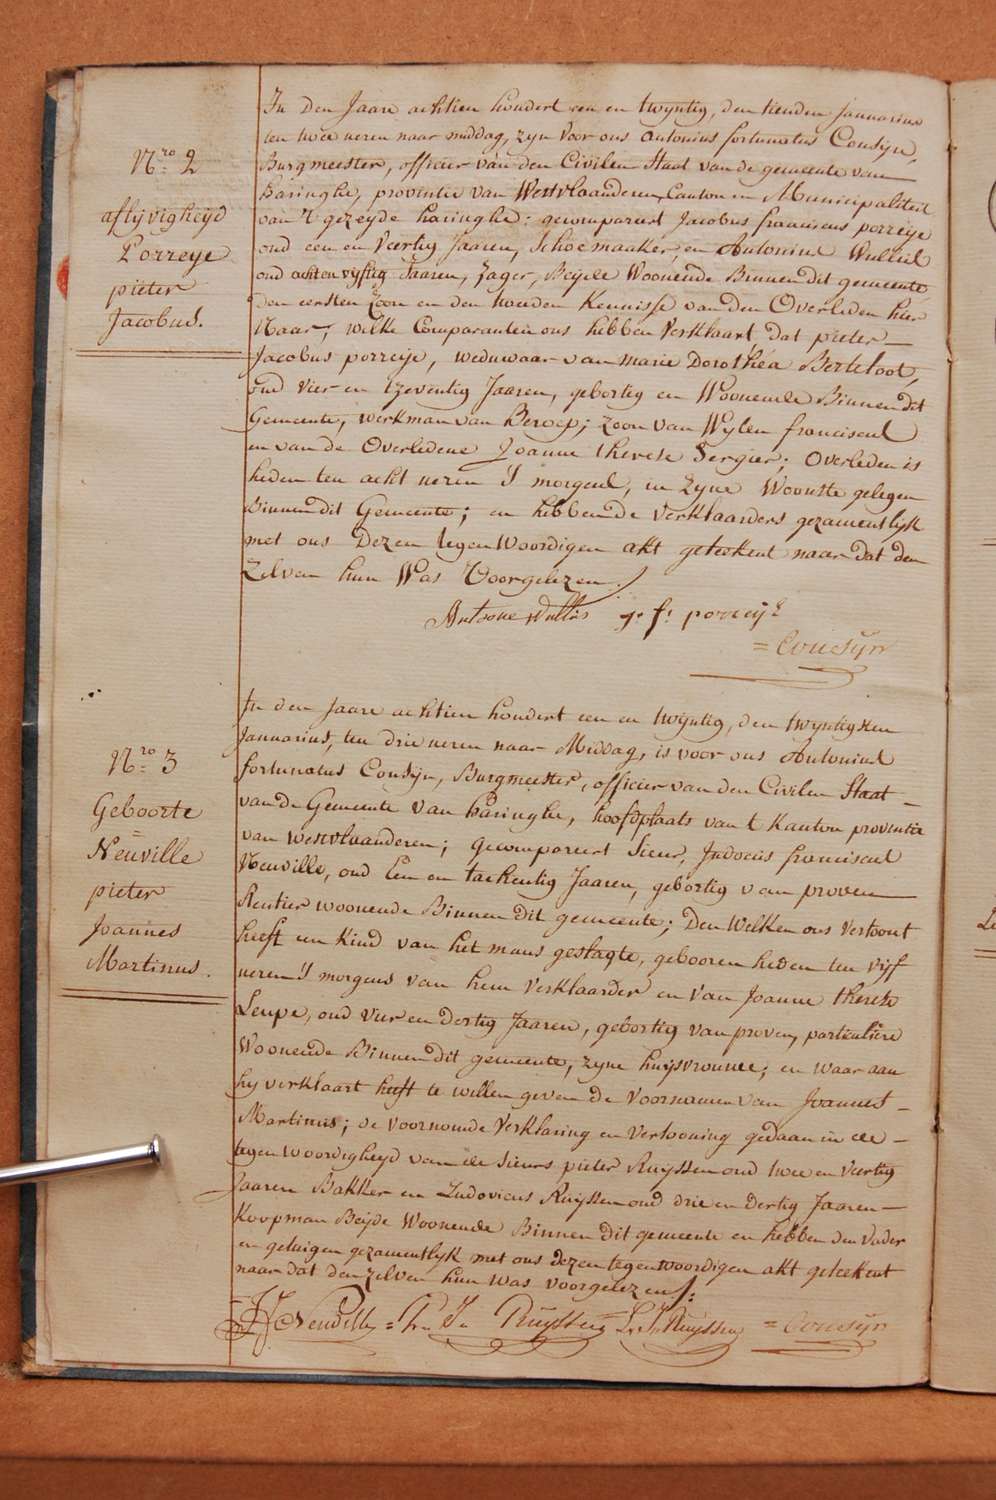 N.ro 2
aflijvigheijd
Porreye
pieter
Jacobus.
In den Jaare achtien hondert een en twijntig, den tienden januarius
ten twee ueren naar middag, zyn voor ons Antonius fortunatus Cousijn,
Burgmeester, officier van den Civilen Staat van de gemeente van
haringhe, provintie van Westvlaanderen, Canton en Municipaliteit
van 't gezeyde haringhe: gecompareert Jacobus franciscus porreije
oud een en Veertig Jaaren, Schoemaaker, en Antonius Wullus
oud achtenvyftig Jaaren, zager, Beijde Woonende Binnen dit gemeente,
den eersten Zoon en den tweeden Kennisse van den Overleden hier
Naar, welke Comparanten ons hebben Verklaart, dat pieter
Jacobus porreije, weduwaar van marie Dorothéa Berteloot,
oud Vier en tzeventig Jaaren, gebortig en Woonende Binnen dit
Gemeente, werkman van Beroep; zoon van Wylen franciscus
en van de Overledene Joanne therese Sergier; Overleden is
heden ten acht ueren 's morgens, in Zyne Woonste gelegen
Binnen dit Gemeente; en hebben de Verklaarders gezamentlijk
met ons Dezen tegenwoordigen akt geteekent naar dat den
Zelven hun Was Voorgelezen./
Antoone Wullus j. f. porreije
= Cousijn
N.ro 3
Geboorte
Neuville
pieter
Joannes
Martinus.
In den Jaare achtien hondert een en twijntig, den twyntigsten
Januarius, ten drie ueren naar Middag, is voor ons Antonius
fortunatus Cousijn, Burgmeester, officier van den Civilen Staat
van de Gemeente van haringhe, hoofdplaats van t Kanton provintie
van westvlaanderen; gecompareert Sieur, Judocus franciscus
Neuville, oud Een en tachentig Jaaren, gebortig van proven
Rentier woonende Binnen dit gemeente; Den Welken ons vertoont
heeft een Kind van het mans geslagte, gebooren heden ten vijf
ueren 's morgens van hem Verklaarder en van Joanne therese
Leupe, oud Vier en dertig Jaaren, gebortig van proven, particulière
Woonende Binnen dit gemeente, zyne huijsvrouwe; en waar aan
hy verklaart heeft te willen geven de Voornamen van Joannes
Martinus; de voornoemde Verklaring en Vertooning gedaan in de
tegenwoordigheyd van de Sieurs pieter Ruyssen oud twee en Veertig
Jaaren Bakker en Ludovicus Ruyssen oud drie en dertig Jaaren
Koopman Beijde Woonende Binnen dit gemeente en hebben den Vader
en getuigen gezamentlyk met ons dezen tegenwoordigen akt geteekent
naar dat den zelven hun was voorgelezen./.
Neuville = P. J. Ruyssen L. J. Ruyssen = Cousijn